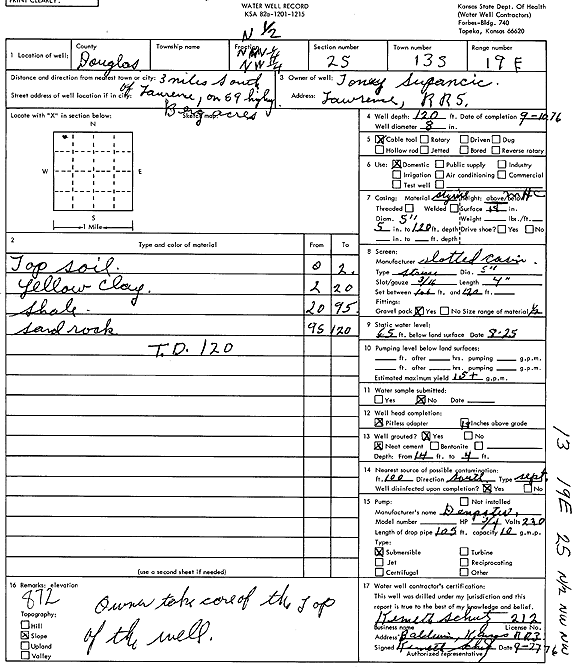 PRINT CLEARLY.
WATER WELL RECORD
KSA 82a-1201-1215
Kansas State Dept. Of Health
(Water Well Contractors)
Forbes-Bldg. 740
Topeka, Kansas 66620
N 1/2
1 Location of well: County Douglas Township name Fraction NW 1/4 NW 1/4 Section number 25 Town number 13S Range number 19E
Distance and direction from nearest town or city: 3 miles south
Street address of well location if in city: of Lawrence, on 59 highy
Big acres
3 Owner of well: Toney Supancic.
Address: Lawrence, R R 5.
Locate with "X" in section below: Sketch map:
N
W E
S
1 Mile
4 Well depth: 120 ft. Date of completion 9-10-76
Well diameter 8 in.
5 Cable tool Rotary Driven Dug
Hollow rod Jetted Bored Reverse rotary
6 Use: Domestic Public supply Industry
Irrigation Air conditioning Commercial
Test well
7 Casing: Material Height: above/below
Threaded Welded Surface in.
Diam. 5" Weight lbs./ft.
5 in. to 120 ft. depth Drive shoe? Yes No
in. to ft. depth
2 Type and color of material From To
Top soil. 0 2.
Yellow clay. 2 20
Shale. 20 95.
Sandrock 95 120
T.D. 120
8 Screen:
Manufacturer slotted casin.
Type Dia. 5"
Slot/gauze 3/16 Length 4"
Set between ft. and 120 ft.
Fittings:
Gravel pack Yes No Size range of material 1/2
9 Static water level:
65 ft. below land surface Date 8-25
10 Pumping level below land surfaces:
ft. after hrs. pumping g.p.m.
ft. after hrs. pumping g.p.m.
Estimated maximum yield 15+ g.p.m.
11 Water sample submitted:
Yes No Date
12 Well head completion:
Pitless adapter Inches above grade
13 Well grouted? Yes No
Neat cement Bentonite
Depth: From 14 ft. to 4 ft.
14 Nearest source of possible contamination:
ft. 100 Direction south Type sept.
Well disinfected upon completion? Yes No
15 Pump: Not installed
Manufacturer's name Dempster,
Model number HP 3/4 Volts 230
Length of drop pipe 105 ft. capacity 10 g.m.p.
Type:
Submersible Turbine
Jet Reciprocating
Centrifugal Other
(use a second sheet if needed)
16 Remarks: elevation
872
Topography:
Hill
Slope
Upland
Valley
Owner take care of the Top
of the well.
17 Water well contractor's certification:
This well was drilled under my jurisdiction and this
report is true to the best of my knowledge and belief.
Kenneth Schulz 212
Business name License No.
Address Baldwin, Kans RR3.
Signed Kenneth Schulz Date 9-27-76
Authorized representative
13 19E 25 N/2 NW NW